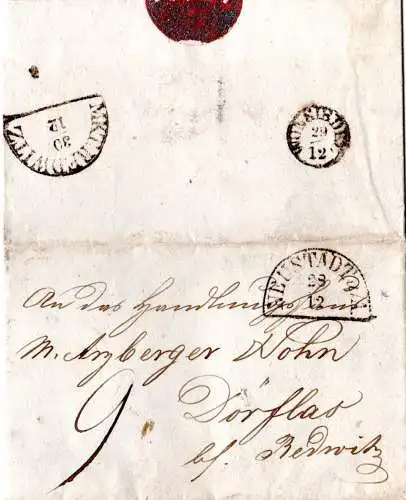 MKTREDWITZ
30
12
WUNSIEDEL
29
12
NEUSTADT
28
12
An das Handlungshaus
M. Arzberger Sohn
9
Dörflas
bf. Redwitz